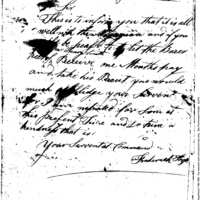 Sir
This is to inform you that it is all
well with the and if you
will be pleased to let the Barer
Receive me Months pay
and take his Recit you would
much oblige your Servent
for I am for Sum at
this present Time and to him a
kindness that is
Your Servant at Command
Frederick